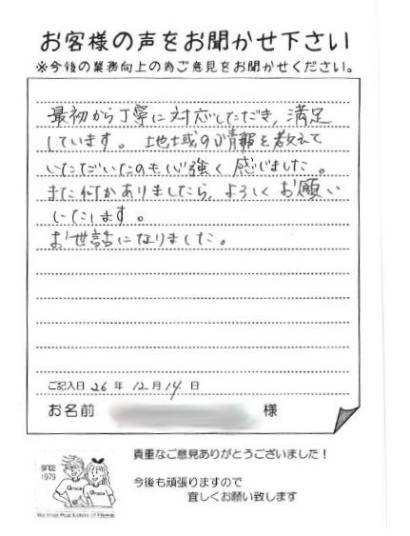 お客様の声をお聞かせ下さい
※今後の業務向上の為ご意見をお聞かせください。
最初から丁寧に対応いただき、満足
しています。地域の情報を教えて
いただいたのも心強く感じました。
また何かありましたら、よろしくお願い
いたします。
お世話になりました。
ご記入日 26 年 12 月 14 日
お名前 様
貴重なご意見ありがとうございました！
今後も頑張りますので
宜しくお願い致します
SINCE
1979